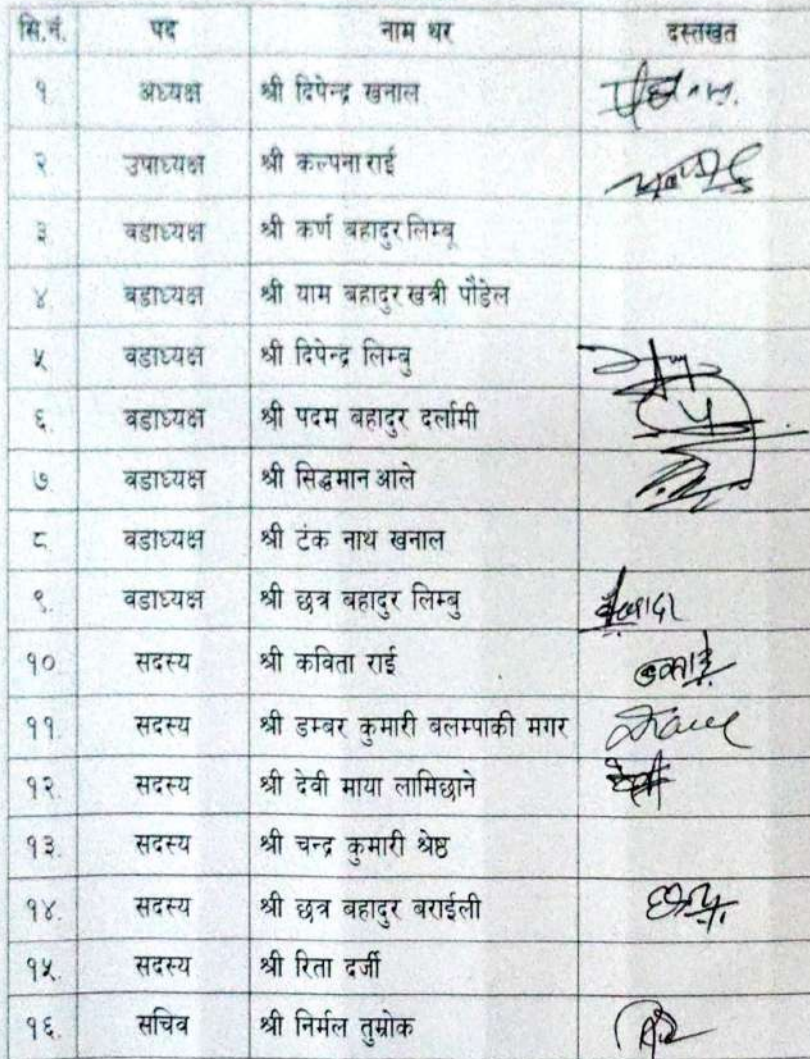 सि.नं. पद नाम थर दस्तखत
१. अध्यक्ष श्री दिपेन्द्र खनाल
२. उपाध्यक्ष श्री कल्पना राई
३. वडाध्यक्ष श्री कर्ण बहादुर लिम्बू
४. वडाध्यक्ष श्री याम बहादुर खत्री पौडेल
५. वडाध्यक्ष श्री दिपेन्द्र लिम्बु
६. वडाध्यक्ष श्री पदम बहादुर दर्लामी
७. वडाध्यक्ष श्री सिद्धमान आले
८ वडाध्यक्ष श्री टंक नाथ खनाल
९. वडाध्यक्ष श्री छत्र बहादुर लिम्बु
१०. सदस्य श्री कविता राई
११. सदस्य श्री डम्बर कुमारी बलम्पाकी मगर
१२. सदस्य श्री देवी माया लामिछाने
१३. सदस्य श्री चन्द्र कुमारी श्रेष्ठ
१४. सदस्य श्री छत्र बहादुर बराईली
१५. सदस्य श्री रिता दर्जी
१६. सचिव श्री निर्मल तुम्रोक